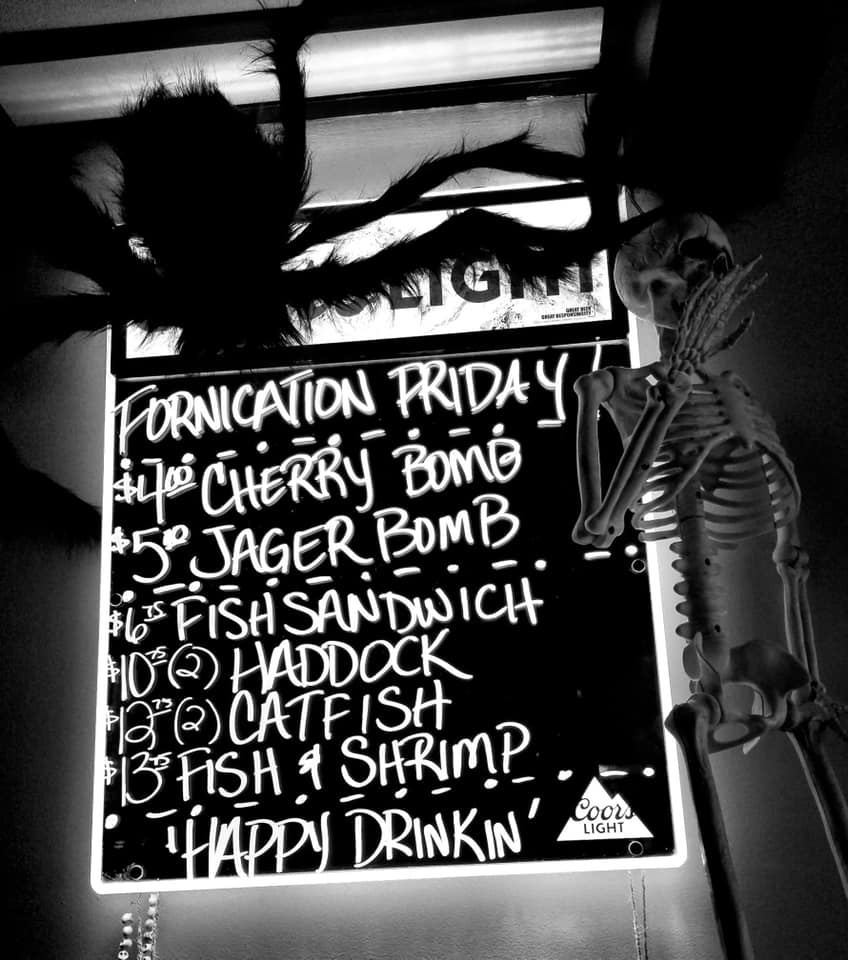 LIGHT
GREAT BEER
GREAT RESPONSIBILITY
FORNICATION PRIDAY!
$4.00 CHERRY BOMB
$5.00 JAGER BOMB
$6.75 FISH SANDWICH
$10.75 (2) HADDOCK
$12.75 (2) CATFISH
$13.75 FISH & SHRIMP
"HAPPY DRINKIN'
Coors
LIGHT